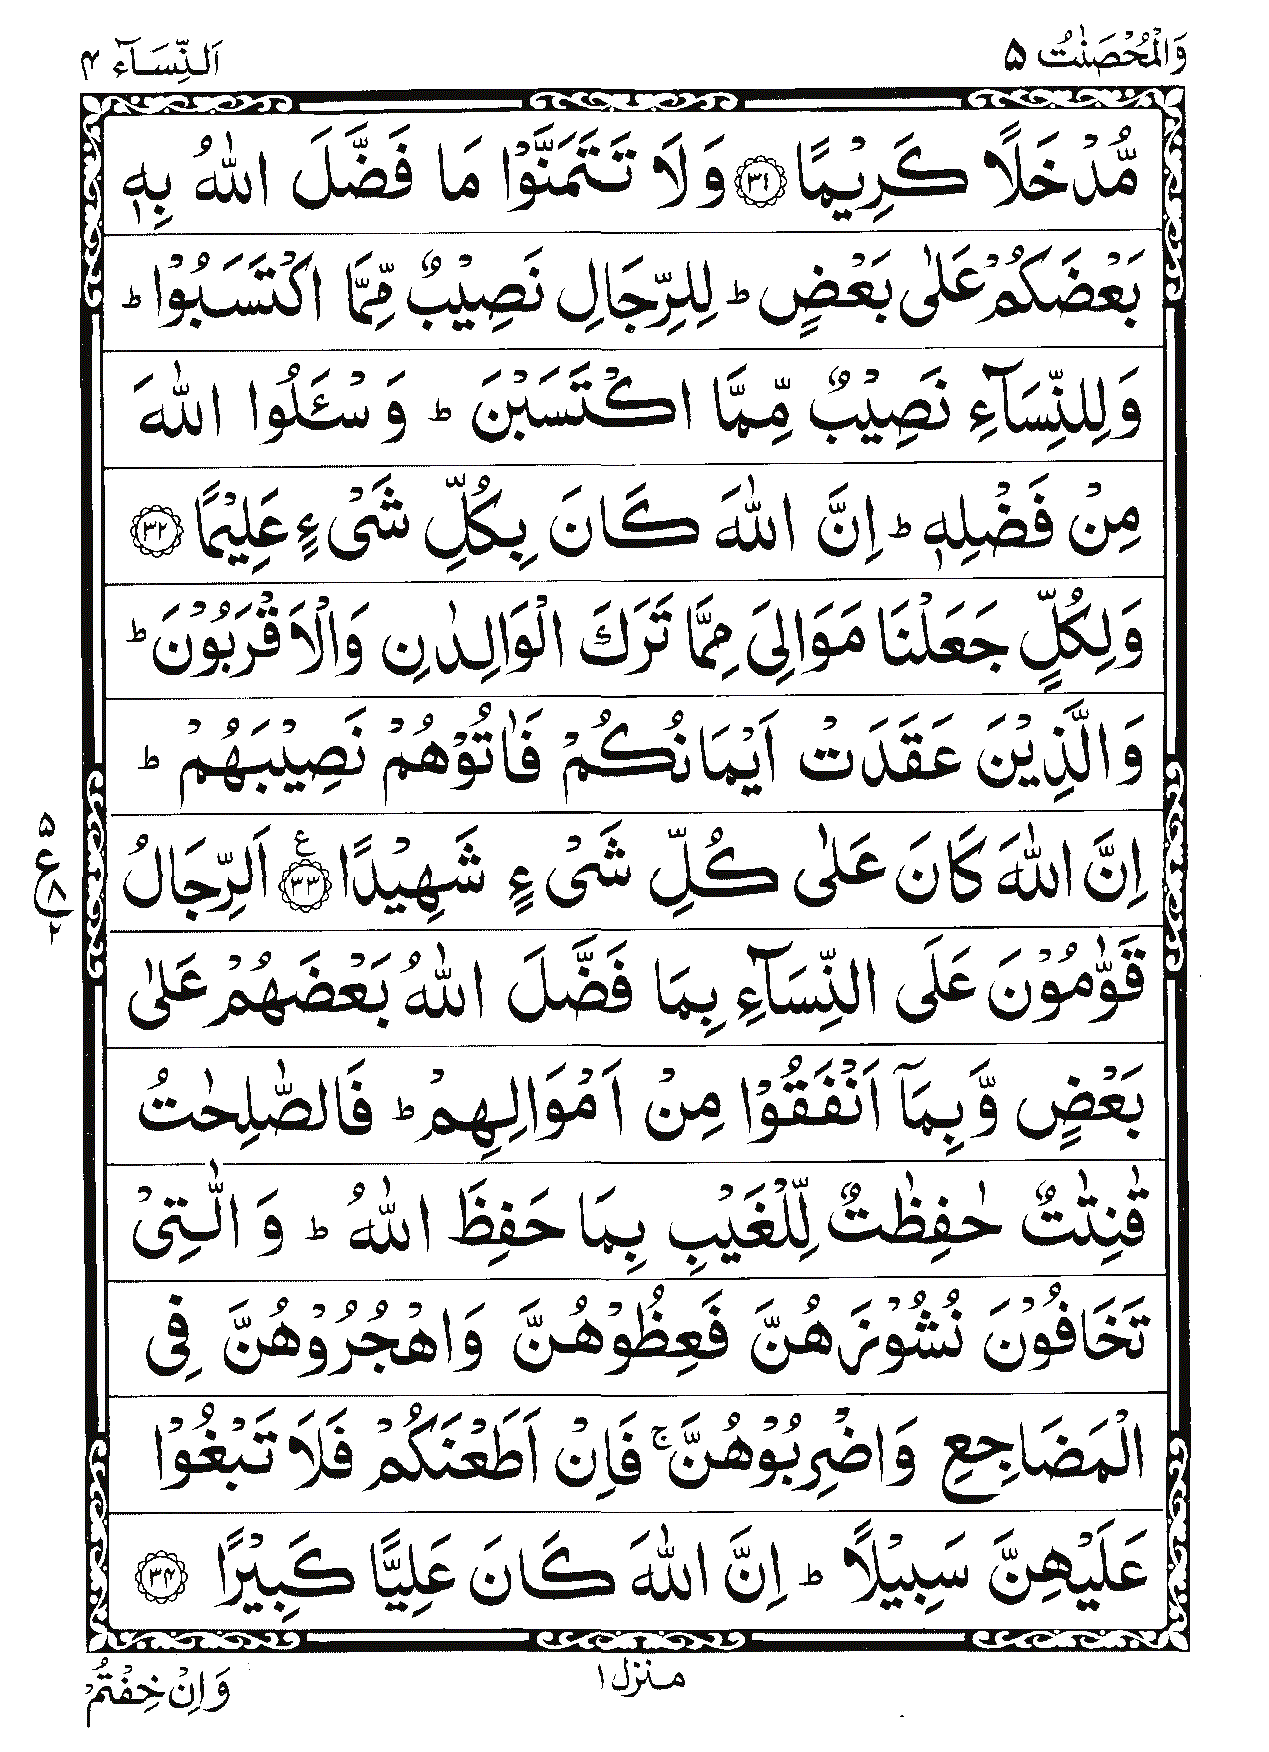 وَالْمُحْصَنٰتُ ۵
اَلنِّسَآء ۴
مُّدْخَلًا كَرِيْمًا ﴿۳۱﴾ وَ لَا تَتَمَنَّوْا مَا فَضَّلَ اللّٰهُ بِهٖ
بَعْضَكُمْ عَلٰى بَعْضٍ ؕ لِلرِّجَالِ نَصِيْبٌ مِّمَّا اكْتَسَبُوْا ؕ
وَلِلنِّسَآءِ نَصِيْبٌ مِّمَّا اكْتَسَبْنَ ؕ وَ سْـَٔلُوا اللّٰهَ
مِنْ فَضْلِهٖ ؕ اِنَّ اللّٰهَ كَانَ بِكُلِّ شَیْءٍ عَلِيْمًا ﴿۳۲﴾
وَلِكُلٍّ جَعَلْنَا مَوَالِیَ مِمَّا تَرَكَ الْوَالِدٰنِ وَالْاَقْرَبُوْنَ ؕ
وَالَّذِيْنَ عَقَدَتْ اَيْمَانُكُمْ فَاٰتُوْهُمْ نَصِيْبَهُمْ ؕ
اِنَّ اللّٰهَ كَانَ عَلٰى كُلِّ شَیْءٍ شَهِيْدًا ﴿۳۳﴾ ع اَلرِّجَالُ
۵ ع ۸ ۲
قَوّٰمُوْنَ عَلَى النِّسَآءِ بِمَا فَضَّلَ اللّٰهُ بَعْضَهُمْ عَلٰى
بَعْضٍ وَّ بِمَآ اَنْفَقُوْا مِنْ اَمْوَالِهِمْ ؕ فَالصّٰلِحٰتُ
قٰنِتٰتٌ حٰفِظٰتٌ لِّلْغَيْبِ بِمَا حَفِظَ اللّٰهُ ؕ وَ الّٰتِیْ
تَخَافُوْنَ نُشُوْزَهُنَّ فَعِظُوْهُنَّ وَاهْجُرُوْهُنَّ فِی
الْمَضَاجِعِ وَاضْرِبُوْهُنَّ ۚ فَاِنْ اَطَعْنَكُمْ فَلَا تَبْغُوْا
عَلَيْهِنَّ سَبِيْلًا ؕ اِنَّ اللّٰهَ كَانَ عَلِيًّا كَبِيْرًا ﴿۳۴﴾
منزل ۱
وَاِنْ خِفْتُمْ